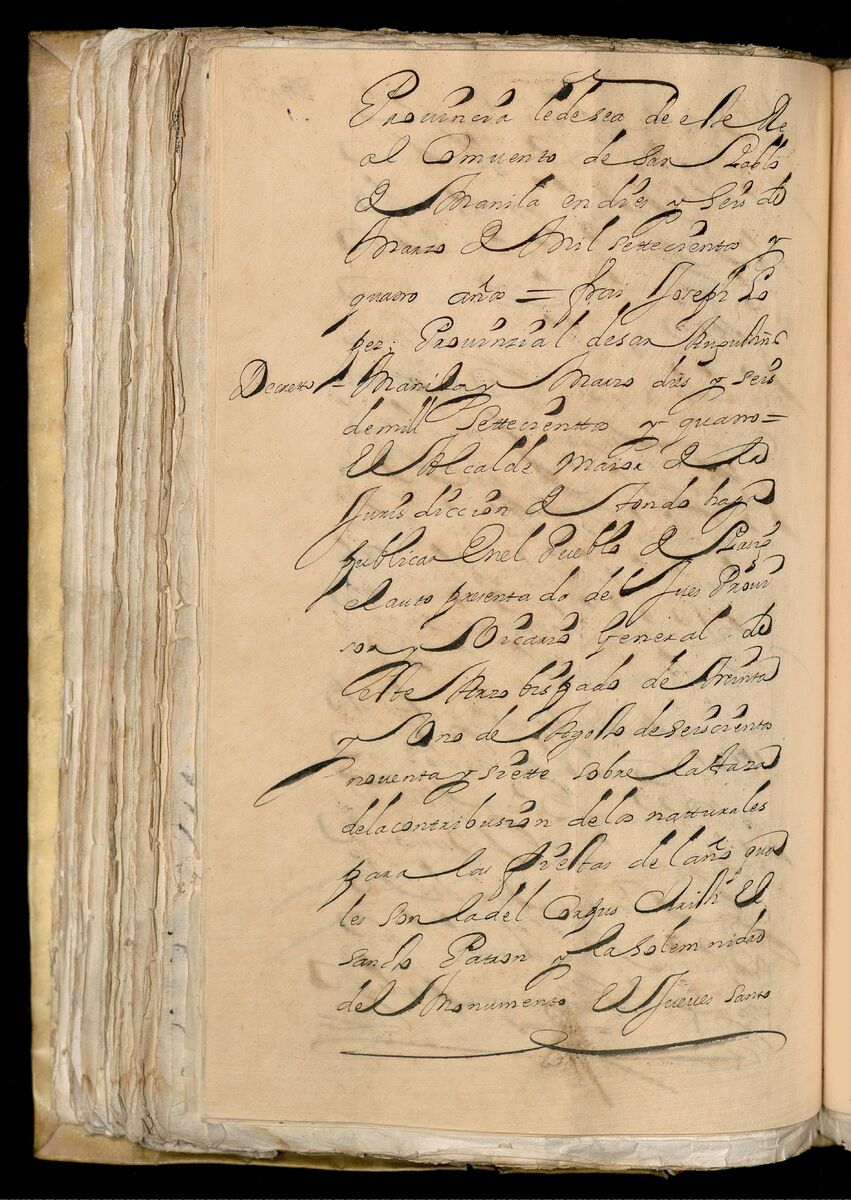 Provincia le desea de este Re
al Comvento de San Pablo
de Manila en dies y seis de
Marzo de Mil settecientos y
quatro años = frai Joseph Lo
pez, Provinzial de san Augustin
Decreto = Manila y Marzo dies y seis
de mill settecienttos y quatro =
El Alcalde Maior de la
Jurisdiccion de Tondo haga
publicar en el Pueblo de Pasig
el auto presentado del Jues Provi
sor y Vicario General de
este Arzobispado de treinta
y Uno de Agosto de seiscientos
noventa y siette sobre la taza
de la contribusion de los natturales
para las fiestas del año qua
les son la del Corpus Cristi El
sancto Patron y la solemnidad
del Monumento El Jueves santo